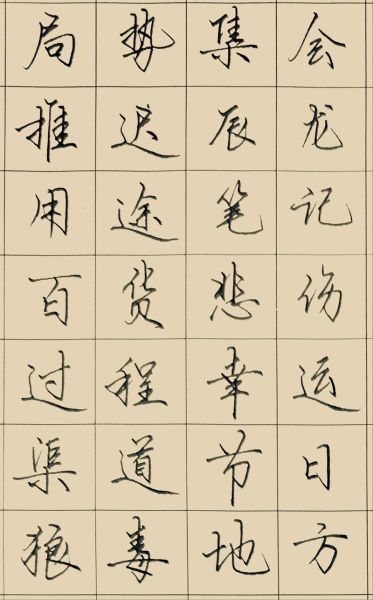 局势集会
推迟辰龙
用途笔记
百货悲伤
过程幸运
渠道节日
狼毒地方